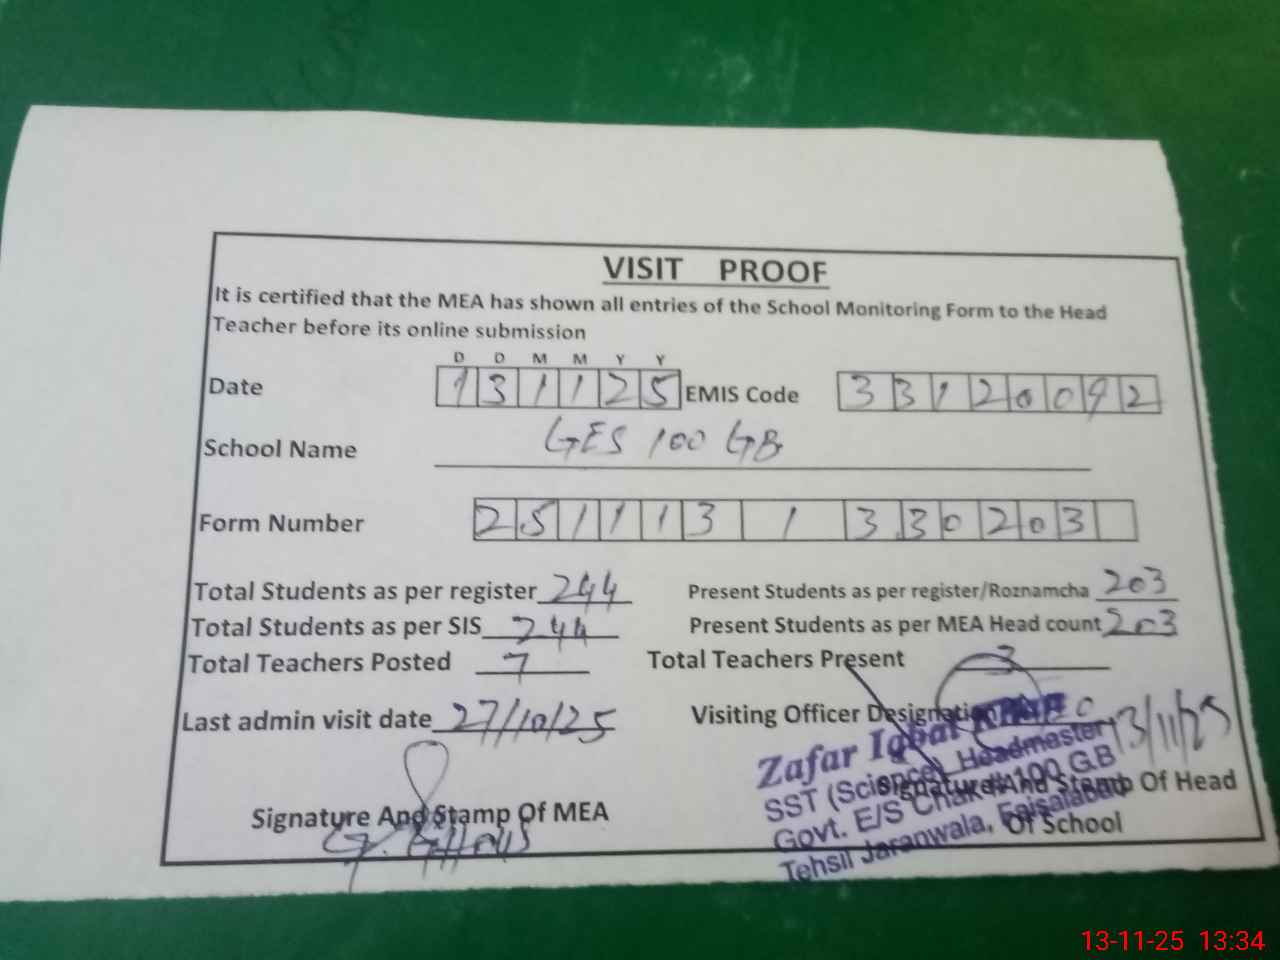 VISIT PROOF
It is certified that the MEA has shown all entries of the School Monitoring Form to the Head
Teacher before its online submission
D D M M Y Y
Date 131125 EMIS Code 33120092
School Name GES 100 GB
Form Number 251113 1 330203
Total Students as per register 244 Present Students as per register/Roznamcha 203
Total Students as per SIS 244 Present Students as per MEA Head count 203
Total Teachers Posted 7 Total Teachers Present
Last admin visit date 27/10/25 Visiting Officer Designation
13/11/25
Zafar Iqbal
SST (Science) Headmaster
Govt. E/S Chak # 100 G.B
Tehsil Jaranwala, Faisalabad
Signature And Stamp Of MEA Signature And Stamp Of Head
Of School
13-11-25 13:34